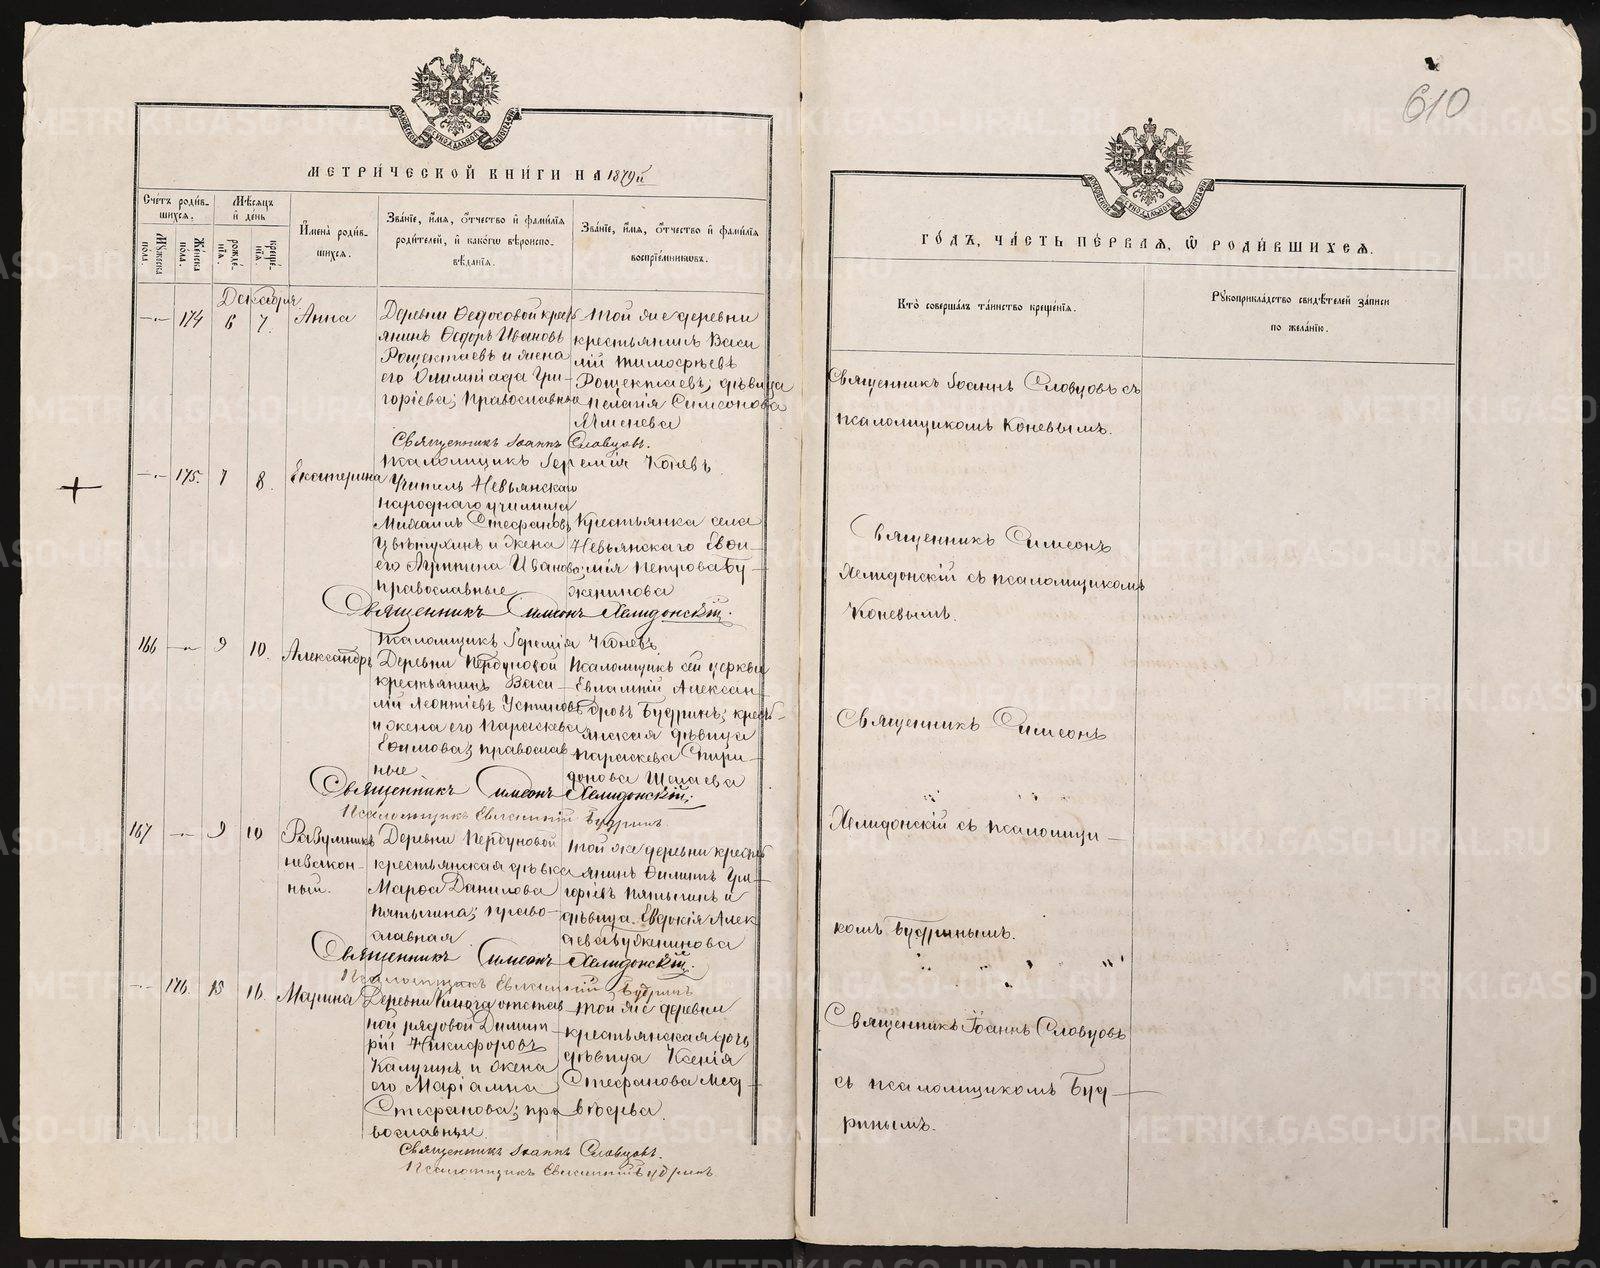 610
МЕТРИЧЕСКОЙ КНИГИ НА 1879й
Счетъ родив-
шихся.
Мѣсяцъ
и день
Мужеска
пола.
Женска
пола.
рожде-
нія.
креще-
нія.
Имена родив-
шихся.
Званіе, имя, отчество и фамилія
родителей, и какого вѣроиспо-
вѣданія.
Званіе, имя, отчество и фамилія
воспріемниковъ.
Декабря
174 6 7. Анна
Деревни Ѳедосовой крест
янинъ Ѳедоръ Ивановъ
Рощектаевъ и жена
его Олимпіада Гри-
горіева; православные
Той же деревни
крестьянинъ Васи
лій Тимофеевъ
Рощектаевъ; дѣвица
Пелагія Симеонова
Ячменева
Священникъ Іоаннъ Словцовъ.
Псаломщикъ Іеремія Коневъ
175. 7 8. Екатерина
Учитель Невьянскаго
народнаго училища
Михаилъ Стефановъ
Цвѣтухинъ и жена
его Агрипина Иванова;
православные
Крестьянка села
Невьянскаго Евѳи-
мія Петрова Бу-
женинова
Священникъ Симеонъ Хелидонскій.
Псаломщикъ Іеремія Коневъ.
166 9 10. Александръ
Деревни Первуновой
крестьянинъ Васи-
лій Леонтіевъ Устиновъ
и жена его Параскева
Ефимова; православ
ные
Псаломщикъ сей церкви
Евлампій Алексан-
дровъ Будринъ; кресть-
янская дѣвица
Параскева Спири-
донова Шалаева
Священникъ Симеонъ Хелидонскій;
Псаломщикъ Евлампій Будринъ.
167 9 10 Разумникъ
незакон-
ный.
Деревни Первуновой
крестьянская дѣвка
Марѳа Данилова
Пятыгина; право-
славная
Той же деревни кресть
янинъ Филиппъ Гри-
горіевъ Пятыгинъ и
дѣвица Евдокія Алек
сѣева Буженинова
Священникъ Симеонъ Хелидонскій.
Псаломщикъ Евлампій Будринъ
176. 15 16. Марина
Деревни Ключа отстав
ной рядовой Димит
рій Никифоровъ
Калугинъ и жена
его Маріамна
Стефанова; пра
вославные.
Той же деревни
крестьянская дочь
дѣвица Ксенія
Стефанова Мед-
вѣдева.
Священникъ Іоаннъ Словцовъ.
Псаломщикъ Евлампій Будринъ
ГОДЪ, ЧАСТЬ ПЕРВАЯ, Ѿ РОДИВШИХСЯ.
Кто совершалъ таинство крещенія.
Рукоприкладство свидѣтелей записи
по желанію.
Священникъ Іоаннъ Словцовъ съ
псаломщикомъ Коневымъ.
Священникъ Симеонъ
Хелидонскій съ псаломщикомъ
Коневымъ.
Священникъ Симеонъ
Хелидонскій съ псаломщи-
комъ Будринымъ.
Священникъ Іоаннъ Словцовъ
съ псаломщикомъ Буд-
ринымъ.
METRIKI.GASO-URAL.RU